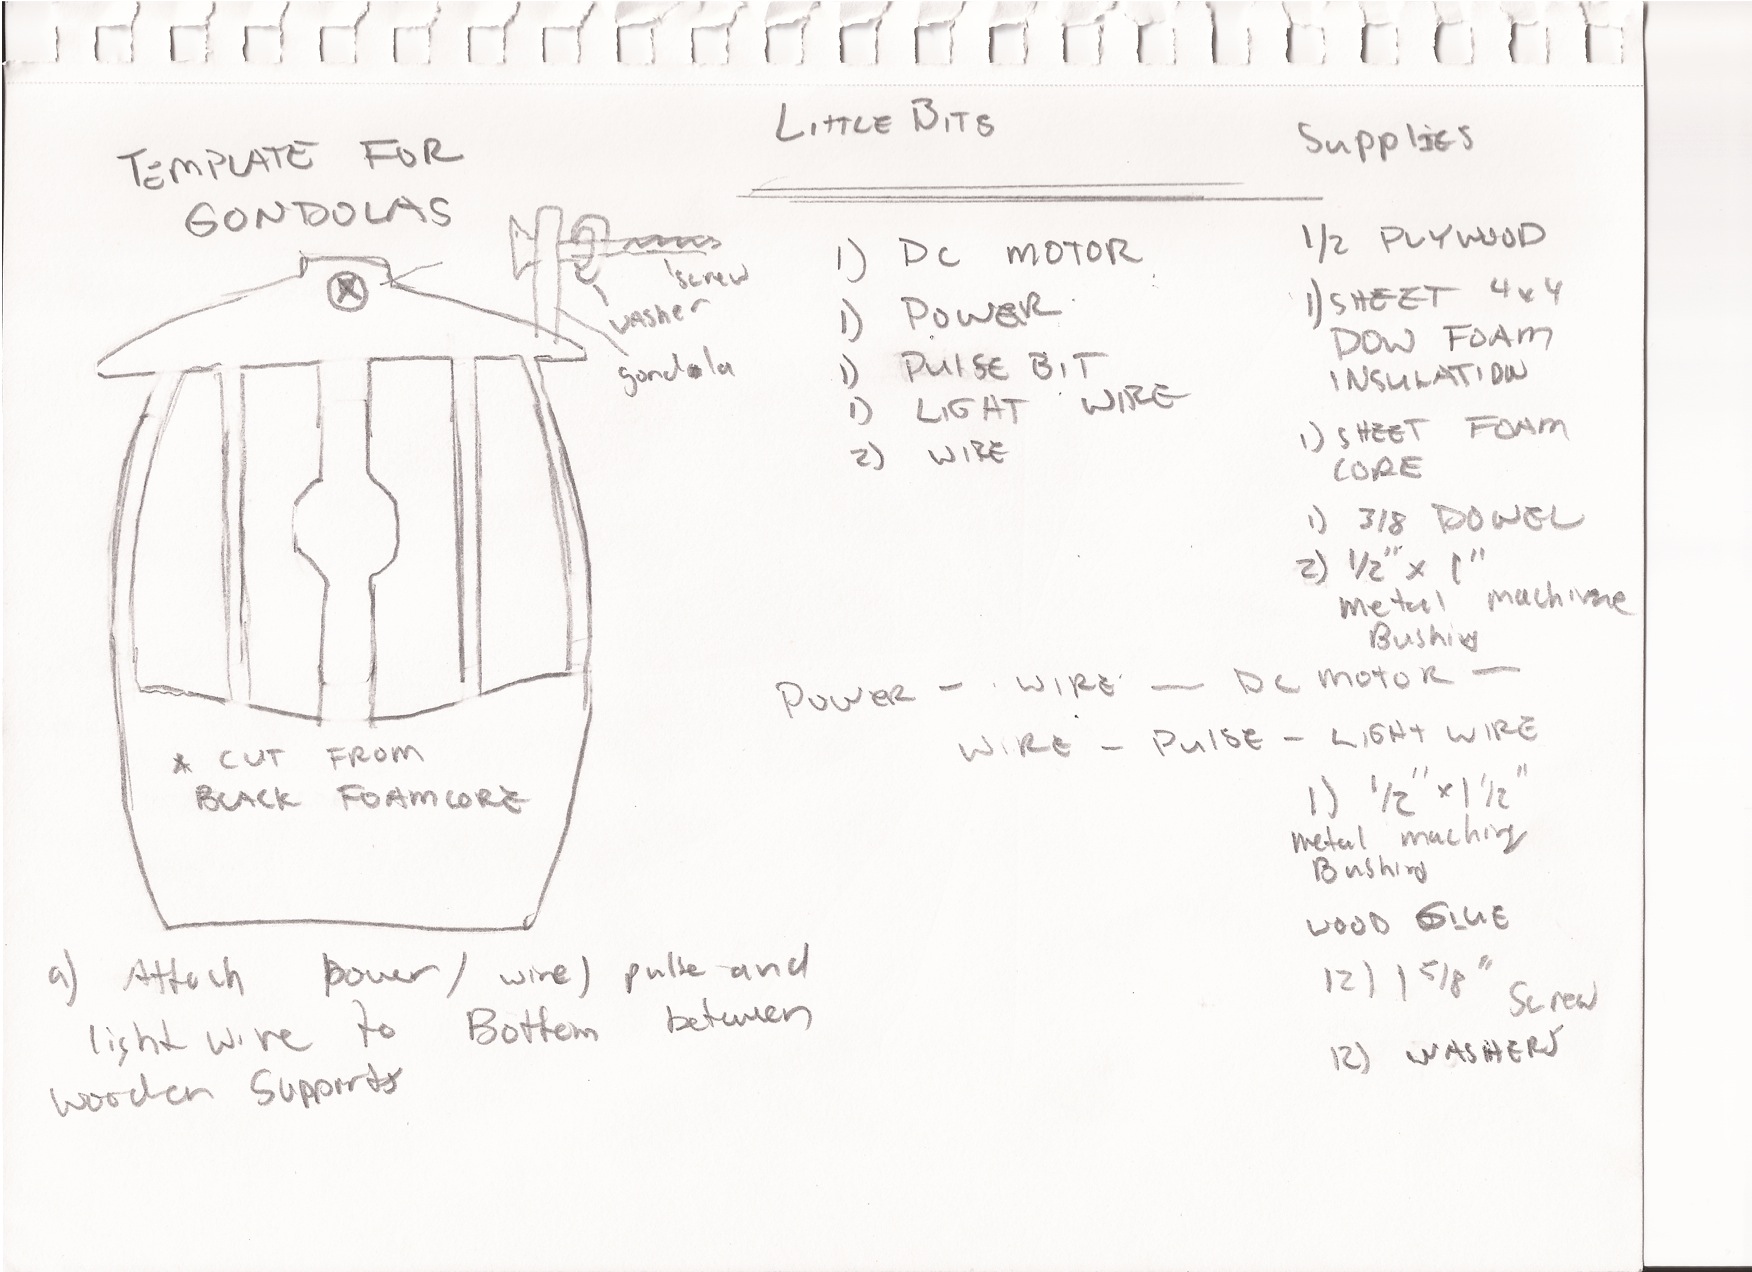 TEMPLATE FOR
GONDOLAS
screw
washer
gondola
* CUT FROM
BLACK FOAMCORE
a) Attach power/ wire) pulse and
light wire to Bottom between
wooden Supports
LITTLE BITS
1) DC MOTOR
1) POWER
1) PULSE BIT
1) LIGHT WIRE
2) WIRE
POWER - WIRE - DC MOTOR -
WIRE - PULSE - LIGHT WIRE
SuppLIES
1/2 PLYWOOD
1) SHEET 4x4
DOW FOAM
INSULATION
1) SHEET FOAM
CORE
1) 3/8 DOWEL
2) 1/2" x 1"
metal machine
Bushing
1) 1/2" x 1 1/2"
metal maching
Bushing
WOOD GLUE
12) 1 5/8"
Screw
12) WASHERS